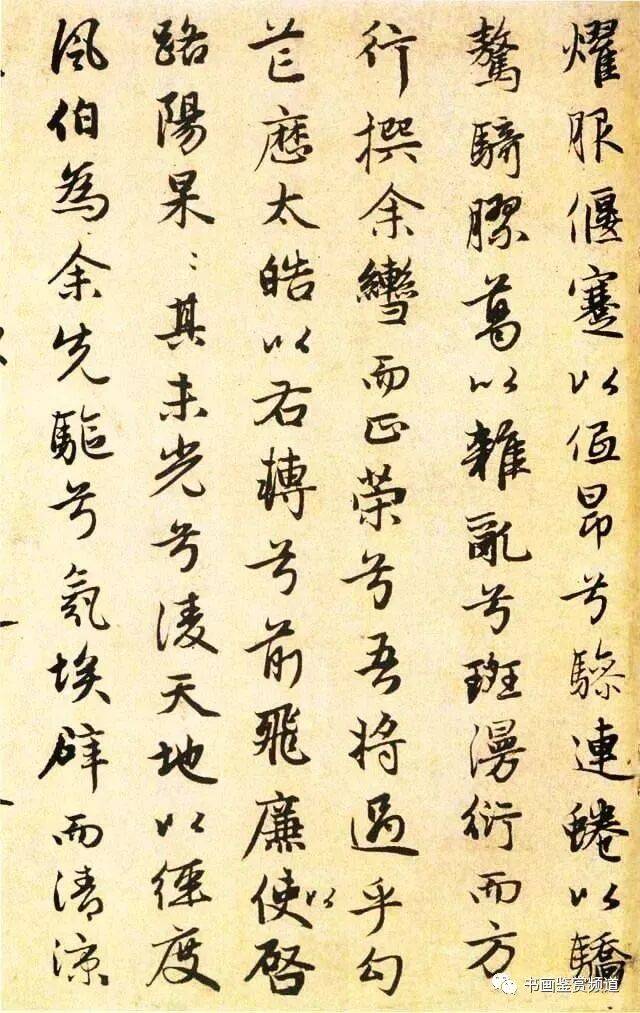 燿服偃蹇以低昂兮驂連蜷以驕
驁騎膠葛以雜亂兮斑漫衍而方
行撰余轡而正策兮吾將過乎勾
芒歷太皓以右轉兮前飛廉使以啓
路陽杲〻其未光兮淩天地以徑度
風伯為余先驅兮氛埃辟而清涼
书画鉴赏频道